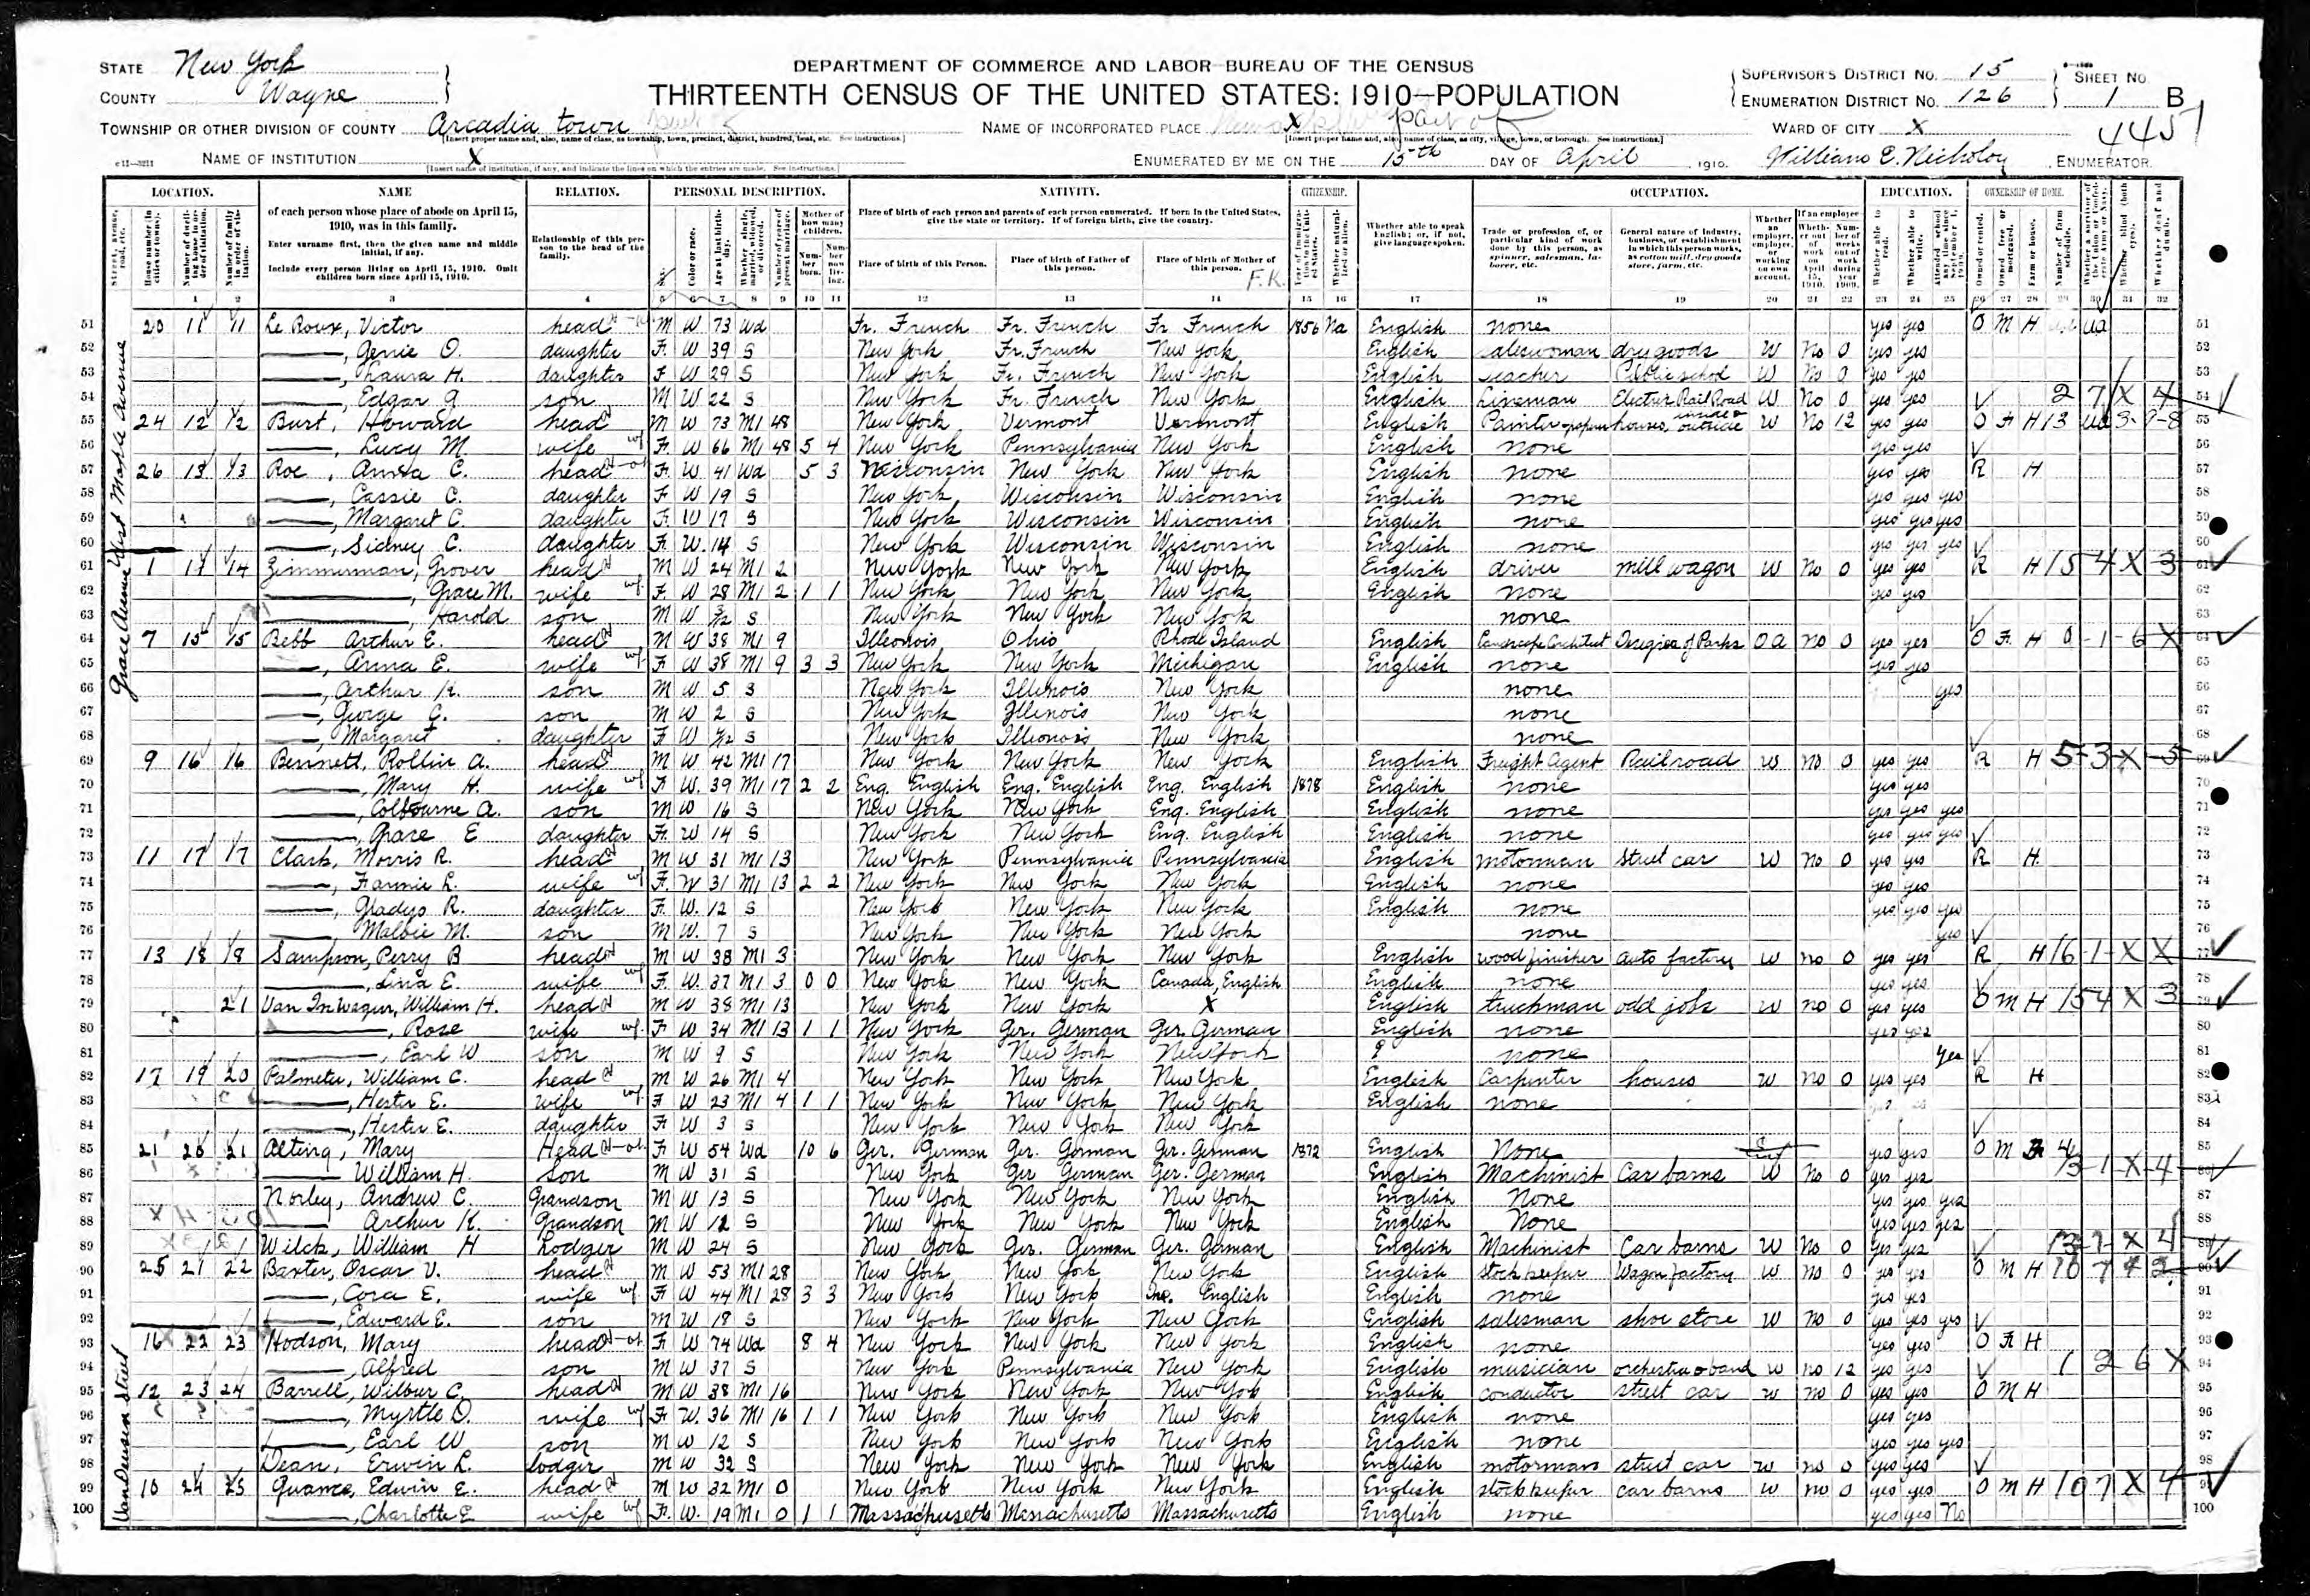 STATE New York
COUNTY Wayne
TOWNSHIP OR OTHER DIVISION OF COUNTY Arcadia town
DEPARTMENT OF COMMERCE AND LABOR-BUREAU OF THE CENSUS
THIRTEENTH CENSUS OF THE UNITED STATES: 1910-POPULATION
NAME OF INCORPORATED PLACE X part of
SUPERVISOR'S DISTRICT NO. 15
ENUMERATION DISTRICT NO. 126
SHEET NO. 1 B
WARD OF CITY X
4457
NAME OF INSTITUTION X
ENUMERATED BY ME ON THE 15th DAY OF April, 1910. William E. Nicholoy, ENUMERATOR.
LOCATION. NAME RELATION. PERSONAL DESCRIPTION. NATIVITY. CITIZENSHIP. OCCUPATION. EDUCATION. OWNERSHIP OF HOME.
of each person whose place of abode on April 15, 1910, was in this family.
Enter surname first, then the given name and middle initial, if any.
Include every person living on April 15, 1910. Omit children born since April 15, 1910.
Relationship of this person to the head of the family.
Place of birth of each person and parents of each person enumerated. If born in the United States, give the state or territory. If of foreign birth, give the country.
Place of birth of this Person. Place of birth of Father of this person. Place of birth of Mother of this person.
Whether able to speak English; or, if not, give language spoken.
West Maple Avenue
51 20 11 11 Le Roux, Victor head M W 73 Wd Fr. French Fr. French Fr French 1856 Na English none yes yes O M H ua
52 , Genie O. daughter F. W 39 S New York Fr. French New York English saleswoman dry goods W No 0 yes yes
53 , Laura H. daughter F W 29 S New York Fr. French New York English teacher Public school W No 0 yes yes
54 , Edgar A son M W 22 S New York Fr. French New York English Lineman Electric Rail Road W No 0 yes yes 2 7 X 4
55 24 12 12 Burt, Howard head M W 73 M1 48 New York Vermont Vermont English Painter houses, inside & outside W No 12 yes yes O F H
56 , Lucy M. wife F. W 66 M1 48 5 4 New York Pennsylvania New York English none yes yes
57 26 13 13 Roe, Anna C. head F. W. 41 Wd 5 3 Wisconsin New York New York English none yes yes R H
58 , Cassie C. daughter F W 19 S New York Wisconsin Wisconsin English none yes yes yes
59 , Margaret C. daughter F. W 17 S New York Wisconsin Wisconsin English none yes yes yes
60 , Sidney C. daughter F. W. 14 S New York Wisconsin Wisconsin English none yes yes yes
Grace Avenue
61 1 14 14 Zimmerman, Grover head M W 24 M1 2 New York New York New York English driver mill wagon W No 0 yes yes R H 15 4 X 3
62 , Grace M. wife F. W 28 M1 2 1 1 New York New York New York English none yes yes
63 , Harold son M W S New York New York New York none
64 7 15 15 Bebb Arthur E. head M W 38 M1 9 Illinois Ohio Rhode Island English Landscape Architect Designer of Parks OA no 0 yes yes O F. H 0-1-6 X
65 , Anna E. wife F W 38 M1 9 3 3 New York New York Michigan English none yes yes
66 , Arthur K. son M W 5 S New York Illinois New York none yes
67 , George C. son M W 2 S New York Illinois New York none
68 , Margaret daughter F W S New York Illinois New York none
69 9 16 16 Bennett, Rollin A. head M W 42 M1 17 New York New York New York English Freight Agent Railroad W no 0 yes yes R H 5-3-X-5
70 , Mary H. wife F W. 39 M1 17 2 2 Eng. English Eng. English Eng. English 1878 English none yes yes
71 , Colbourne A. son M W 16 S New York New York Eng. English English none yes yes yes
72 , Grace E daughter F. W 14 S New York New York Eng. English English none yes yes yes
73 11 17 17 Clark, Morris R. head M W 31 M1 13 New York Pennsylvania Pennsylvania English motorman street car W no 0 yes yes R H.
74 , Fannie L. wife F. W 31 M1 13 2 2 New York New York New York English none yes yes
75 , Gladys R. daughter F. W. 12 S New York New York New York English none yes yes yes
76 M. son M W. 7 S New York New York New York none yes
77 13 18 18 Sampson, Perry B head M W 38 M1 3 New York New York New York English wood finisher auto factory W no 0 yes yes R H 16-1-X X
78 , Lina E. wife F. W. 37 M1 3 0 0 New York New York Canada, English English none yes yes
79 21 Van Inwagen, William H. head M W 38 M1 13 New York New York X English truckman odd jobs W no 0 yes yes O M H 15 4 X 3
80 , Rose wife F W 34 M1 13 1 1 New York Ger. German Ger. German English none yes yes
81 , Earl W son M W 9 S New York New York New York none yes
82 17 19 20 Palmeter, William C. head M W 26 M1 4 New York New York New York English Carpenter houses W no 0 yes yes R H
83 , Hester E. wife F W 23 M1 4 1 1 New York New York New York English none
84 , Hester E. daughter F W 3 S New York New York New York
85 21 20 21 Alting, Mary Head F W 54 Wd 10 6 Ger. German Ger. German Ger. German 1872 English None yes yes O M
86 William H. son M W 31 S New York Ger German Ger. German English Machinist Car barns W No 0 yes yes
87 Norley, Andrew C. Grandson M W 13 S New York New York New York English None yes yes yes
88 Arthur K. Grandson M W 12 S New York New York New York English None yes yes yes
89 Wilck, William H Lodger M W 24 S New York Ger. German Ger. German English Machinist Car barns W No 0 yes yes
90 25 21 22 Baxter, Oscar V. head M W 53 M1 28 New York New York New York English stock keeper Wagon factory W no 0 yes yes O M H
91 , Cora E. wife F W 44 M1 28 3 3 New York New York English English none yes yes
92 , Edward E. son M W 18 S New York New York New York English salesman shoe store W no 0 yes yes yes
Van Deusen Street
93 16 22 23 Hodson, Mary head F W 74 Wd 8 4 New York New York New York English none yes yes O F H
94 , Alfred son M W 37 S New York Pennsylvania New York English musician orchestra & band W no 12 yes yes 1 2 6 X
95 12 23 24 Barrell, Wilbur C. head M W 38 M1 16 New York New York New York English conductor street car W no 0 yes yes O M H
96 , Myrtle D. wife F W. 36 M1 16 1 1 New York New York New York English none yes yes
97 , Earl W son M W 12 S New York New York New York English none yes yes yes
98 Dean, Erwin L. lodger M W 32 S New York New York New York English motorman street car W no 0 yes yes
99 10 24 25 Quance, Edwin E. head M W 32 M1 0 New York New York New York English stock keeper car barns W no 0 yes yes O M H 10 7 X 4
100 , Charlotte E wife F. W. 19 M1 0 1 1 Massachusetts Massachusetts Massachusetts English none yes yes No